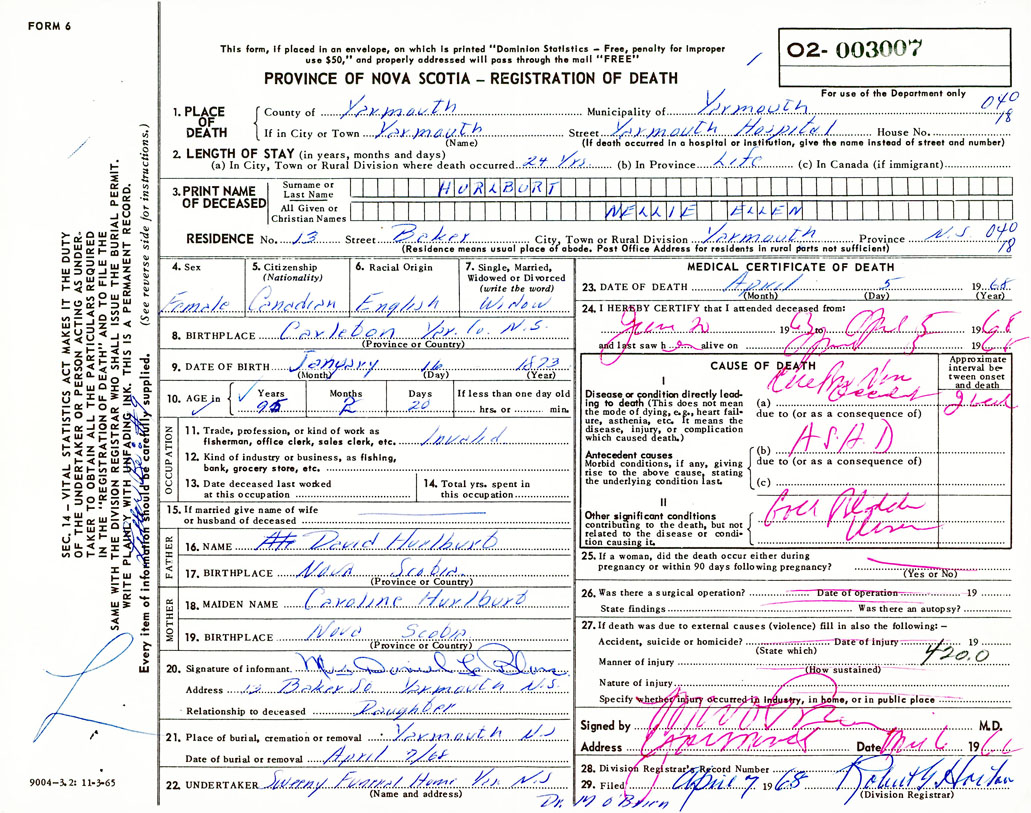 FORM 6
This form, if placed in an envelope, on which is printed "Dominion Statistics – Free, penalty for improper
use $50," and properly addressed will pass through the mail "FREE"
PROVINCE OF NOVA SCOTIA – REGISTRATION OF DEATH
02- 003007
For use of the Department only
040
18
1. PLACE OF DEATH
County of Yarmouth Municipality of Yarmouth
If in City or Town Yarmouth Street Yarmouth Hospital House No.
(Name) (If death occurred in a hospital or institution, give the name instead of street and number)
2. LENGTH OF STAY (in years, months and days)
(a) In City, Town or Rural Division where death occurred 24 Yrs. (b) In Province Life (c) In Canada (if immigrant)
3. PRINT NAME OF DECEASED
Surname or Last Name HURLBURT
All Given or Christian Names NELLIE ELLEN
RESIDENCE No. 13 Street Baker City, Town or Rural Division Yarmouth Province N.S. 040
(Residence means usual place of abode. Post Office Address for residents in rural parts not sufficient) 18
4. Sex Female
5. Citizenship (Nationality) Canadian
6. Racial Origin English
7. Single, Married, Widowed or Divorced (write the word) Widow
8. BIRTHPLACE Carleton Yar. Co. N.S.
(Province or Country)
9. DATE OF BIRTH January 16 1873
(Month) (Day) (Year)
10. AGE in Years 95 Months 2 Days 20 If less than one day old hrs. or min.
OCCUPATION
11. Trade, profession, or kind of work as
fisherman, office clerk, sales clerk, etc. Invalid
12. Kind of industry or business, as fishing,
bank, grocery store, etc.
13. Date deceased last worked
at this occupation
14. Total yrs. spent in
this occupation
15. If married give name of wife
or husband of deceased
FATHER
16. NAME David Hurlburt
17. BIRTHPLACE Nova Scotia
(Province or Country)
MOTHER
18. MAIDEN NAME Caroline Hurlburt
19. BIRTHPLACE Nova Scotia
(Province or Country)
20. Signature of informant
Address 13 Baker St Yarmouth N.S.
Relationship to deceased Daughter
21. Place of burial, cremation or removal Yarmouth N.S
Date of burial or removal April 7/68
22. UNDERTAKER Sweeny Funeral Home Yar. N.S
(Name and address)
Dr. M O'Brien
MEDICAL CERTIFICATE OF DEATH
23. DATE OF DEATH April 5 1968
(Month) (Day) (Year)
24. I HEREBY CERTIFY that I attended deceased from:
19 to April 5 1968
and last saw h alive on April 5 19
CAUSE OF DEATH
Approximate interval between onset and death
I
Disease or condition directly lead-
ing to death (This does not mean
the mode of dying, e.g., heart fail-
ure, asthenia, etc. It means the
disease, injury, or complication
which caused death.)
(a)
due to (or as a consequence of)
Antecedent causes
Morbid conditions, if any, giving
rise to the above cause, stating
the underlying condition last.
(b) A.S.H.D
due to (or as a consequence of)
(c)
II
Other significant conditions
contributing to the death, but not
related to the disease or condi-
tion causing it.
25. If a woman, did the death occur either during
pregnancy or within 90 days following pregnancy?
(Yes or No)
26. Was there a surgical operation? Date of operation 19
State findings Was there an autopsy?
27. If death was due to external causes (violence) fill in also the following: –
Accident, suicide or homicide? Date of injury 19
(State which)
Manner of injury 420.0
(How sustained)
Nature of injury
Specify whether injury occurred in industry, in home, or in public place
Signed by M.D.
Address Yarmouth Date 19
28. Division Registrar's Record Number
29. Filed April 7 1968 Robert G Horton
(Division Registrar)
SEC. 14 – VITAL STATISTICS ACT MAKES IT THE DUTY
OF THE UNDERTAKER OR PERSON ACTING AS UNDER-
TAKER TO OBTAIN ALL THE PARTICULARS REQUIRED
IN THE "REGISTRATION OF DEATH" AND TO FILE THE
SAME WITH THE DIVISION REGISTRAR WHO SHALL ISSUE THE BURIAL PERMIT.
WRITE PLAINLY WITH UNFADING INK. THIS IS A PERMANENT RECORD.
Every item of information should be carefully supplied. (See reverse side for instructions.)
9004-3.2: 11-3-65